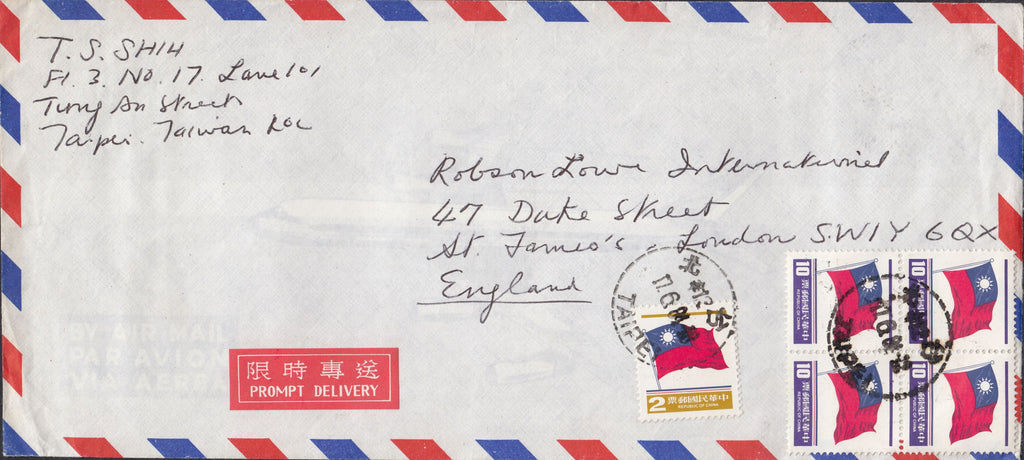 T. S. SHIH
Fl. 3. No. 17. Lane 101
Tung An Street
Taipei. Taiwan ROC
Robson Lowe International
47 Duke Street
St. James's - London S.W1Y 6QX
England
BY AIR MAIL
PAR AVION
限時專送
PROMPT DELIVERY
TAIPEI
2 票郵國民華中
REPUBLIC OF CHINA
10 票郵國民華中
REPUBLIC OF CHINA
10 票郵國民華中
REPUBLIC OF CHINA
10 票郵國民華中
REPUBLIC OF CHINA
10 票郵國民華中
REPUBLIC OF CHINA